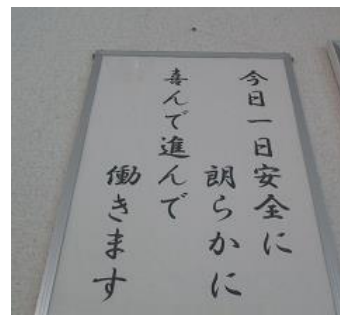 今日一日安全に
朗らかに
喜んで進んで
働きます